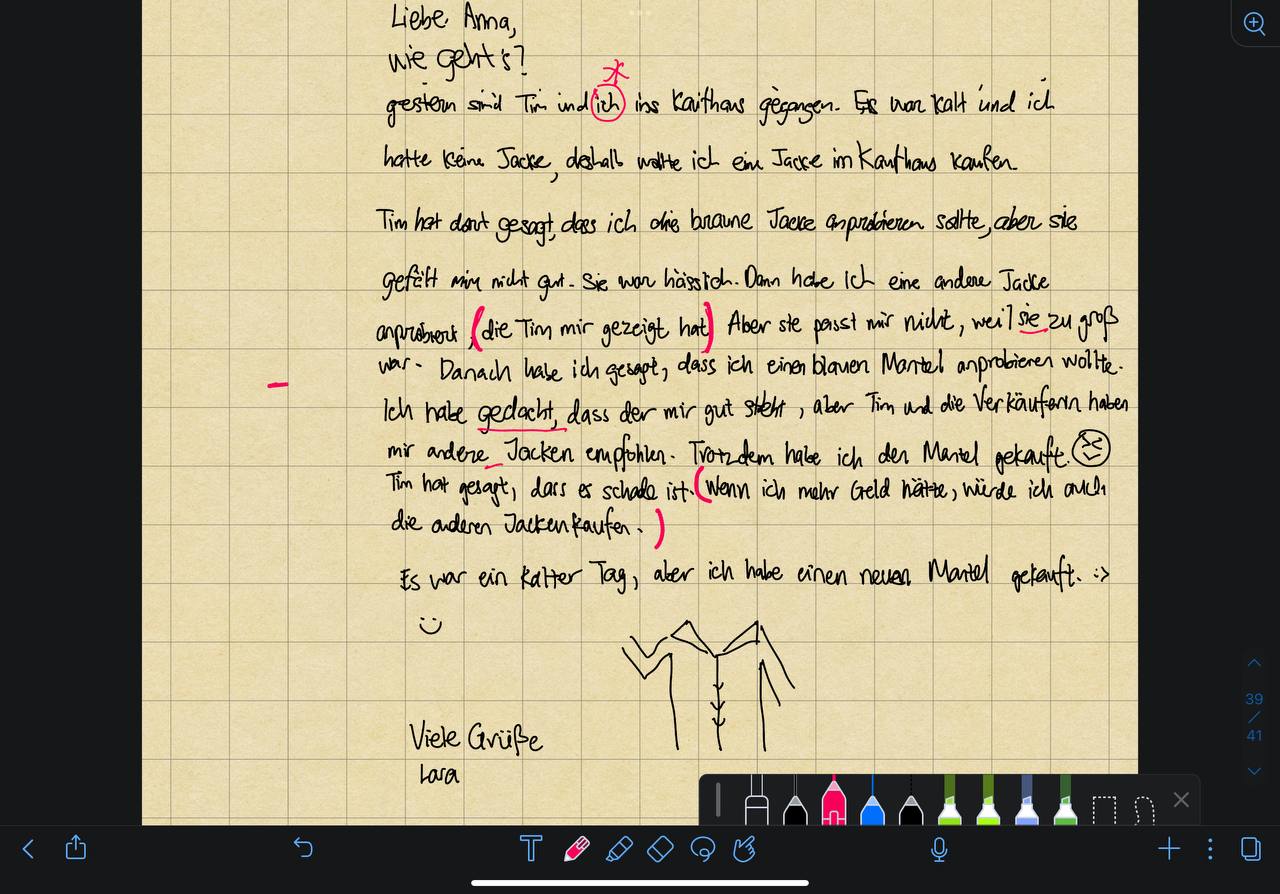 Liebe Anna,
wie geht's?
gestern sind Tim und ich ins Kaufhaus gegangen. Es war kalt und ich
hatte keine Jacke, deshalb wollte ich eine Jacke im Kaufhaus kaufen.
Tim hat dort gesagt, dass ich die braune Jacke anprobieren sollte, aber sie
gefällt mir nicht gut. Sie war hässlich. Dann habe ich eine andere Jacke
anprobiert, (die Tim mir gezeigt hat) Aber sie passt mir nicht, weil sie zu groß
war. Danach habe ich gesagt, dass ich einen blauen Mantel anprobieren wollte.
Ich habe gedacht, dass der mir gut steht, aber Tim und die Verkäuferin haben
mir andere Jacken empfohlen. Trotzdem habe ich den Mantel gekauft.
Tim hat gesagt, dass es schade ist. (Wenn ich mehr Geld hätte, würde ich auch
die anderen Jacken kaufen. )
Es war ein kalter Tag, aber ich habe einen neuen Mantel gekauft. :>
Viele Grüße
Lara
39
/
41